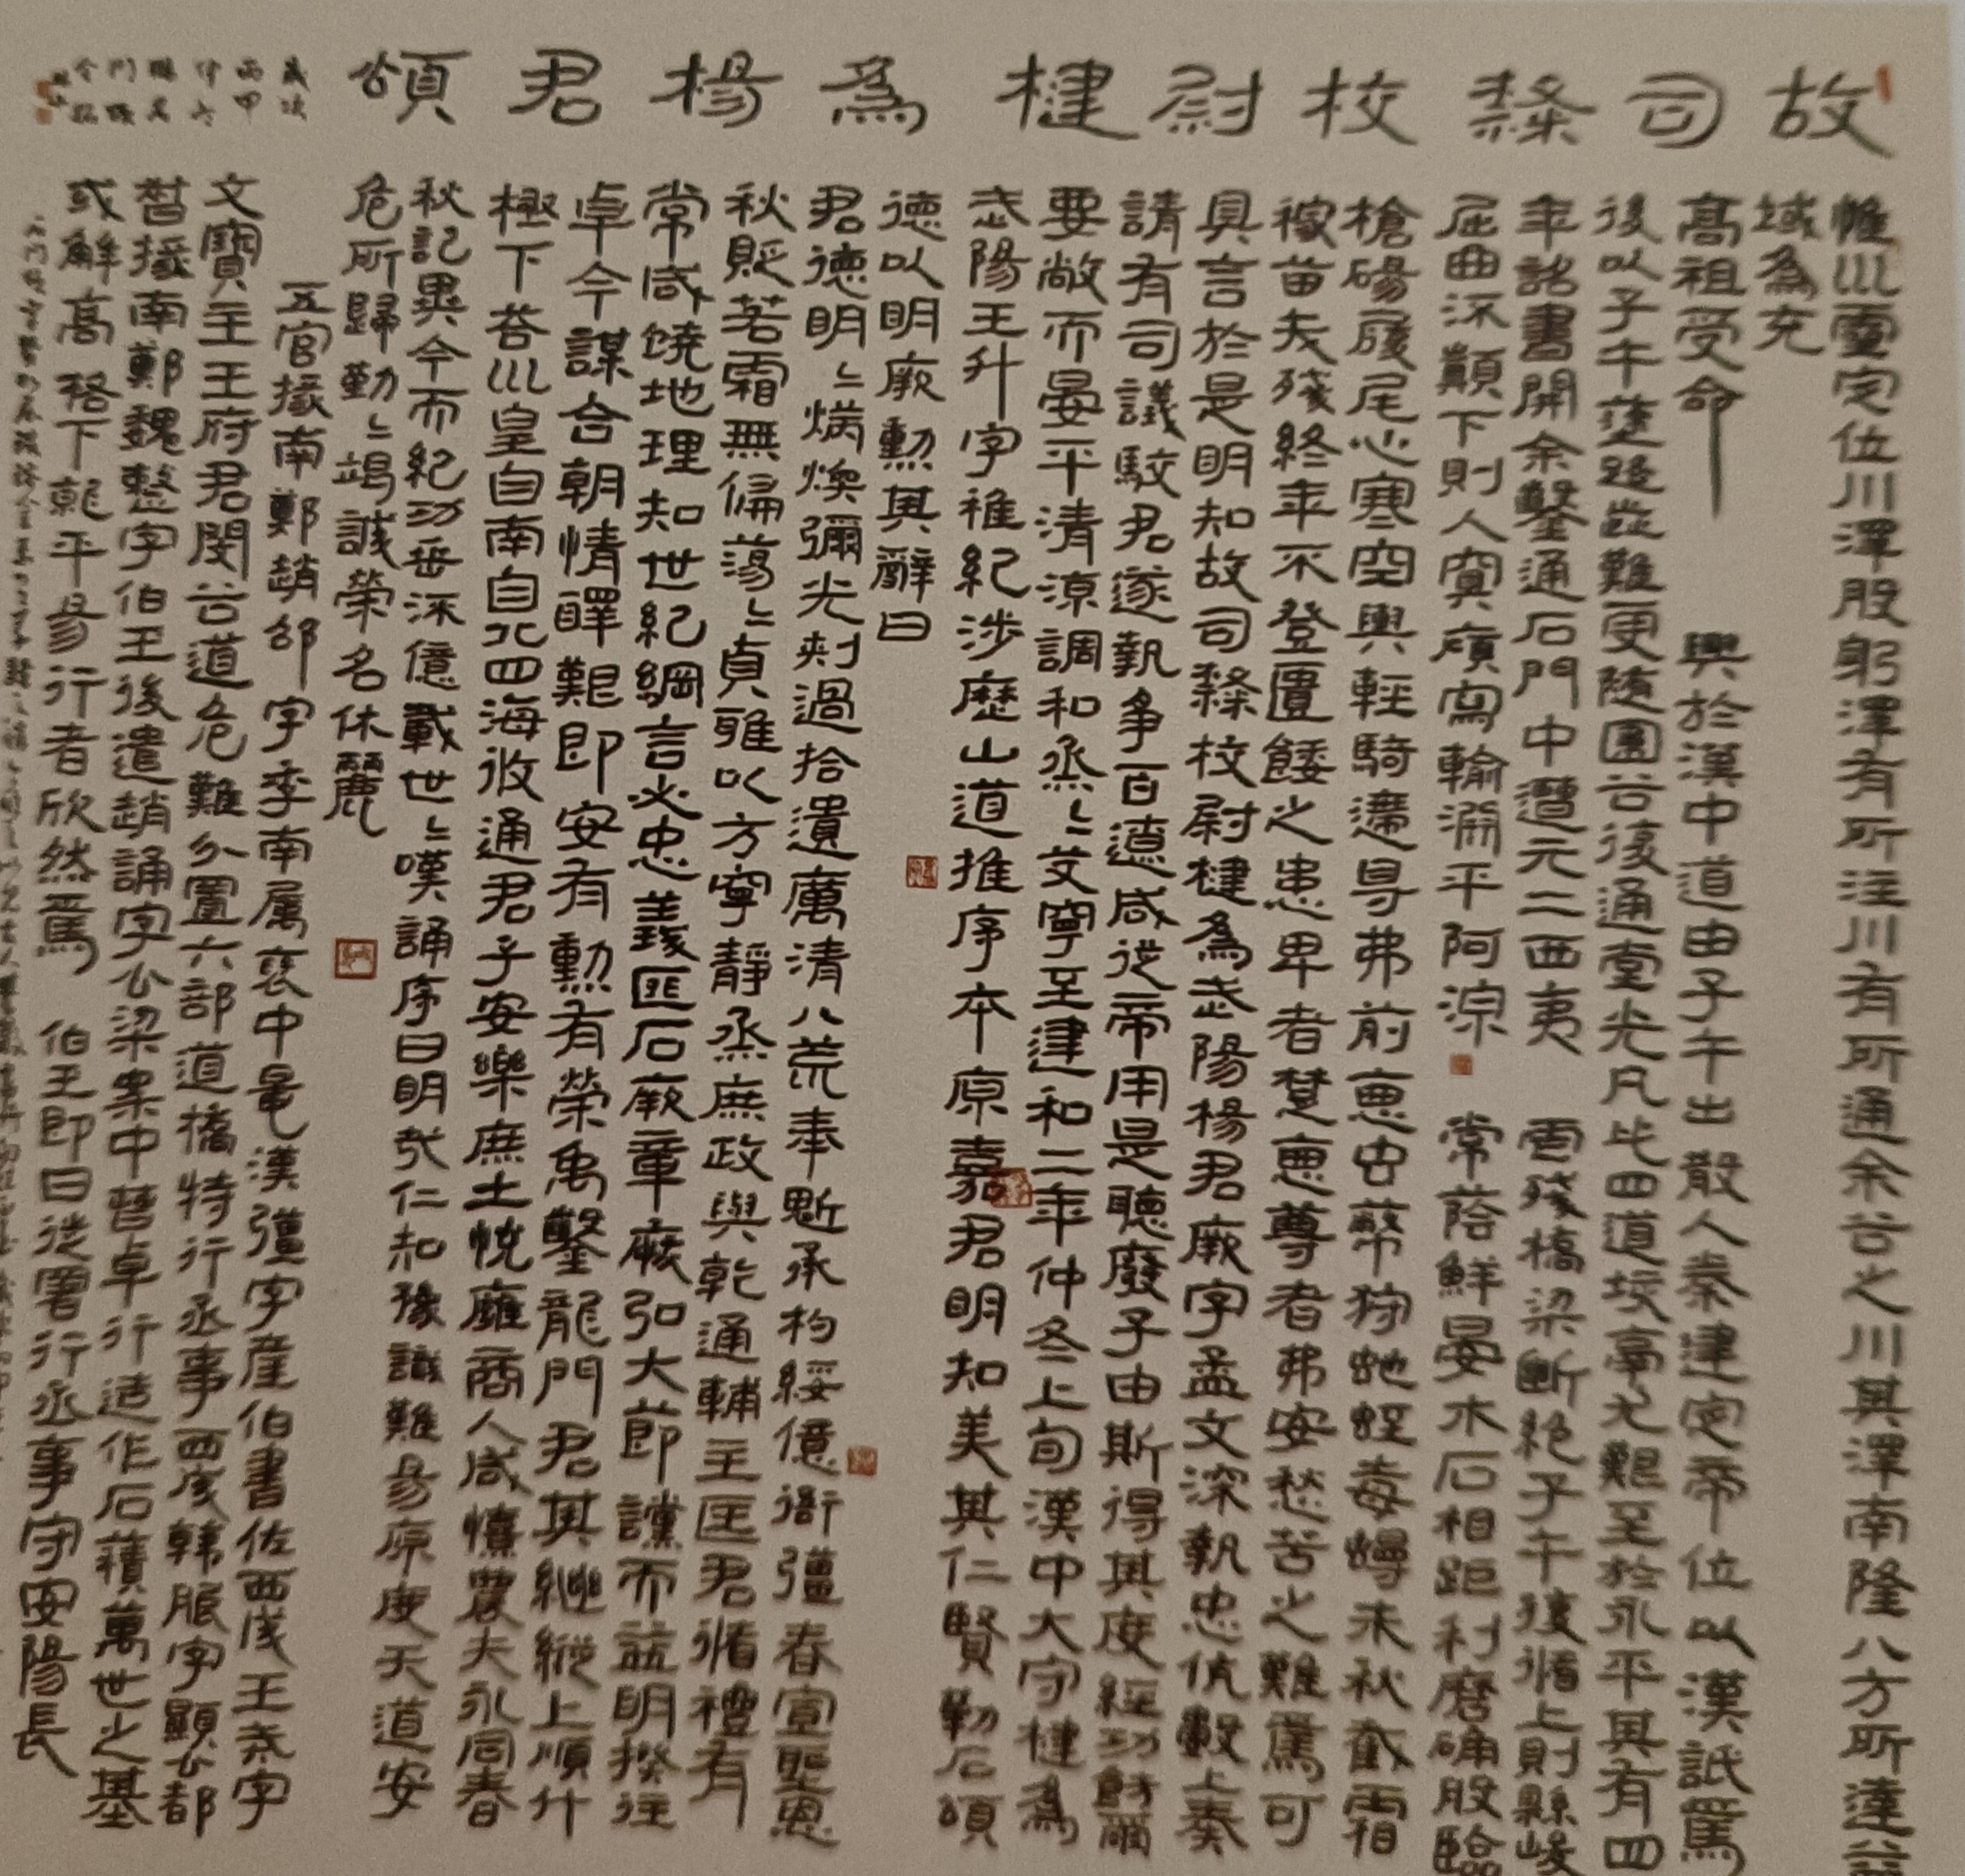 故司隸校尉楗為楊君頌
惟巛靈定位川澤股躬澤有所注川有所通余谷之川其澤南隆八方所達益
域為充
高祖受命 興於漢中道由子午出散入秦建定帝位以漢詆焉
後以子午塗路歰難更隨圍谷復通堂光凡此四道垓鬲尤艱至於永平其有四
年詔書開余鑿通石門中遭元二西夷 虐殘橋梁斷絕子午復循上則縣峻
屈曲流顛下則入冥傾寫輸淵平阿淖 常蔭鮮晏木石相距利磨确臨
槍碭履尾心寒空輿輕騎遰㝵弗前惡虫蔽狩虵蛭毒蟃未秋截霜
稼苗夭殘終年不登匱餧之患卑者楚惡尊者弗安愁苦之難焉可
具言於是明知故司隸校尉楗為武陽楊君厥字孟文深執忠伉數上奏
請有司議駮君遂執爭百遼咸從帝用是聽廢子由斯得其度經功飭爾
要敞而晏平清涼調和烝〻艾寧至建和二年仲冬上旬漢中大守楗為
武陽王升字稚紀涉歷山道推序本原嘉君明知美其仁賢勒石頌
德以明厥勳其辭曰
君德明〻炳煥彌光刺過拾遺厲清八荒奉魁承杓綏億衙彊春宣聖恩
秋貶若霜無偏蕩〻貞雅以方寧靜烝庶政與乾通輔主匡君循禮有
常咸曉地理知世紀綱言必忠義匪石厥章恢弘大節讜而益明揆往
卓今謀合朝情醳艱即安有勳有榮禹鑿龍門君其繼縱上順斗
極下答巛皇自南自北四海攸通君子安樂庶士悅雍商人咸憘農夫永同春
秋記異今而紀功垂流億載世〻嘆誦序曰明哉仁知豫識難易原度天道安
危所歸勤〻竭誠榮名休麗
五官掾南鄭趙邵字季南屬褒中鼂漢彊字產伯書佐西成王戒字
文寶主王府君閔谷道危難分置六部道橋特行丞事西成韓朖字顯公都
督掾南鄭魏整字伯王後遣趙誦字公梁案中曹卓行造作石積萬世之基
或解高格下就平易行者欣然焉 伯王即日徙署行丞事守安陽長